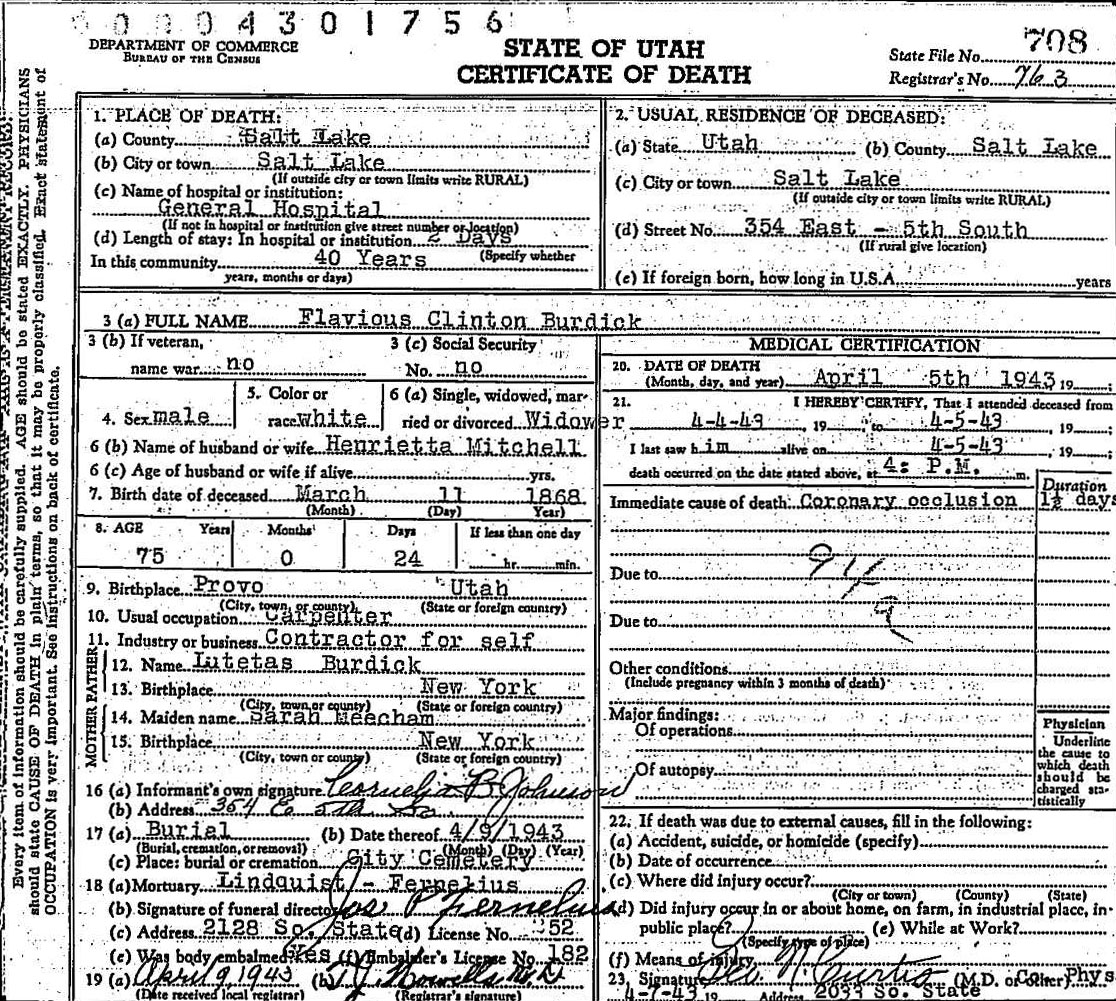 0 0 0 4 3 0 1 7 5 6
DEPARTMENT OF COMMERCE
BUREAU OF THE CENSUS
STATE OF UTAH
CERTIFICATE OF DEATH
State File No. 708
Registrar's No. 763
Every item of information should be carefully supplied. AGE should be stated EXACTLY. PHYSICIANS
should state CAUSE OF DEATH in plain terms, so that it may be properly classified. Exact statement of
OCCUPATION is very important. See instructions on back of certificate.
1. PLACE OF DEATH:
(a) County Salt Lake
(b) City or town Salt Lake
(If outside city or town limits write RURAL)
(c) Name of hospital or institution:
General Hospital
(If not in hospital or institution give street number or location)
(d) Length of stay: In hospital or institution 2 Days
(Specify whether
In this community 40 Years
years, months or days)
2. USUAL RESIDENCE OF DECEASED:
(a) State Utah (b) County Salt Lake
(c) City or town Salt Lake
(If outside city or town limits write RURAL)
(d) Street No. 354 East - 5th South
(If rural give location)
(e) If foreign born, how long in U.S.A. years
3 (a) FULL NAME Flavious Clinton Burdick
3 (b) If veteran, 3 (c) Social Security
name war no No. no
4. Sex male 5. Color or race white 6 (a) Single, widowed, mar-
ried or divorced Widower
6 (b) Name of husband or wife Henrietta Mitchell
6 (c) Age of husband or wife if alive yrs.
7. Birth date of deceased March 11 1868
(Month) (Day) Year)
8. AGE Years Months Days If less than one day
75 0 24 hr. min.
9. Birthplace Provo Utah
(City, town, or county) (State or foreign country)
10. Usual occupation Carpenter
11. Industry or business Contractor for self
FATHER
12. Name Lutetas Burdick
13. Birthplace New York
(City, town or county) (State or foreign country)
MOTHER
14. Maiden name Sarah Meecham
15. Birthplace New York
(City, town or county) (State or foreign country)
16 (a) Informant's own signature Cornelia B. Johnson
(b) Address 354 E 5th So.
17 (a) Burial (b) Date thereof 4/9/1943
(Burial, cremation, or removal) (Month) (Day) (Year)
(c) Place: burial or cremation City Cemetery
18 (a) Mortuary Lindquist - Fernelius
(b) Signature of funeral director Jos P Fernelius
(c) Address 2128 So. State (d) License No. 52
(e) Was body embalmed Yes (f) Embalmer's License No. 182
19 (a) April 9, 1943 (b) T. J. Howells M.D.
(Date received local registrar) (Registrar's signature)
MEDICAL CERTIFICATION
20. DATE OF DEATH
(Month, day, and year) April 5th 1943 19
21. I HEREBY CERTIFY, That I attended deceased from
4-4-43, 19 to 4-5-43, 19;
I last saw him alive on 4-5-43, 19;
death occurred on the date stated above, at 4: P.M. m.
Duration
Immediate cause of death Coronary occlusion 1½ days
Due to
Due to
Other conditions
(Include pregnancy within 3 months of death)
Major findings:
Of operations
Of autopsy
Physician
Underline
the cause to
which death
should be
charged sta-
tistically
22. If death was due to external causes, fill in the following:
(a) Accident, suicide, or homicide (specify)
(b) Date of occurrence
(c) Where did injury occur?
(City or town) (County) (State)
(d) Did injury occur in or about home, on farm, in industrial place, in
public place? (e) While at Work?
(Specify type of place)
(f) Means of injury
23. Signature Geo N. Curtis (M.D. or other) Co. Phys
4-7-43 19 Address 2033 So. State